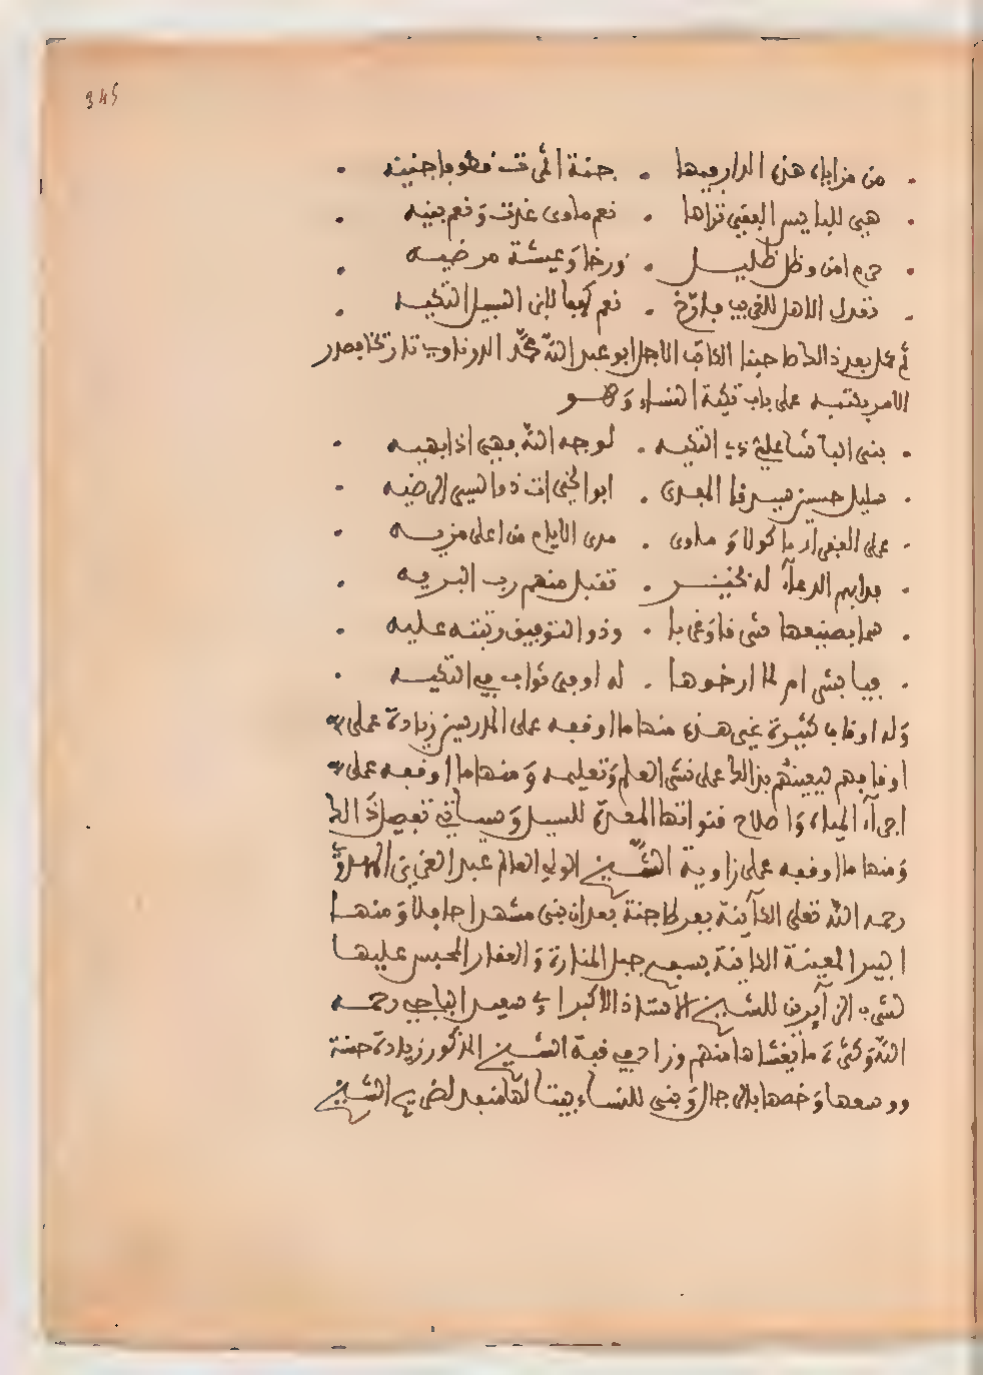 345
من مزاياه هذه الدار فيها . جنة اثمرت قطوفا جنيه
هي للبايس الفقير تراها . نعم ماوى غدت ونعم بنيه
حرم امن وظل ظليل . ورخا وعيشة مرضيه
تفدل الاهل للغريب فارخ . نعم كهفا لابن السبيل التكيه
ثم عمل بعد ذلك صاحبنا الكاتب الاجل ابو عبد الله محمد الدرناوي تاريخا بصدر
الامر بكتبه على باب تكية النساء وهو
بنى الباشا علي ذي التكيه . لوجه الله فهي اذا بهيه
سليل حسين سيدنا المفدى . ابو الخيرات ذو السير الرضيه
على الفقراء ماكولا وماوى . مدى الايام من اعلى مزيه
فدايم الدعاء له بخير . تقبل منهم رب البريه
سما بصنيعها شرفا وغربا . وذو التوفيق رتبته عليه
فيا بشرا م لما ارخوها . له اوفى ثواب في التكيه
وله اوقاف كثيرة غير هذه منها ما اوقفه على المدرسين زيادة على
اوقافهم ليعينهم بذلك على نشر العلم وتعليمه ومنها ما اوقفه على
اجراء المياه واصلاح قنواتها المعدة للسبيل وسياتي تفصيل ذلك
ومنها ما اوقفه على زاوية الشيخ الولي العالم عبد العزيز المهدوي
رحمه الله تعلى الكاينة بعرطاجنة بعد ان بنى مشهدا حافلا ومنها
البير المعينة الكاينة بسفح جبل المنارة والعقار المحبس عليها
لشرب الزايرين للشيخ الاستاذ الاكبر ابي سعيد الباجي رحمه
الله وكثرة ما يغشاها منهم وزاد في قبة الشيخ المذكور زيادة حسنة
ووسعها وخصها بالرجال وبنى للنساء بيتا لها منفذ لضريح الشيخ